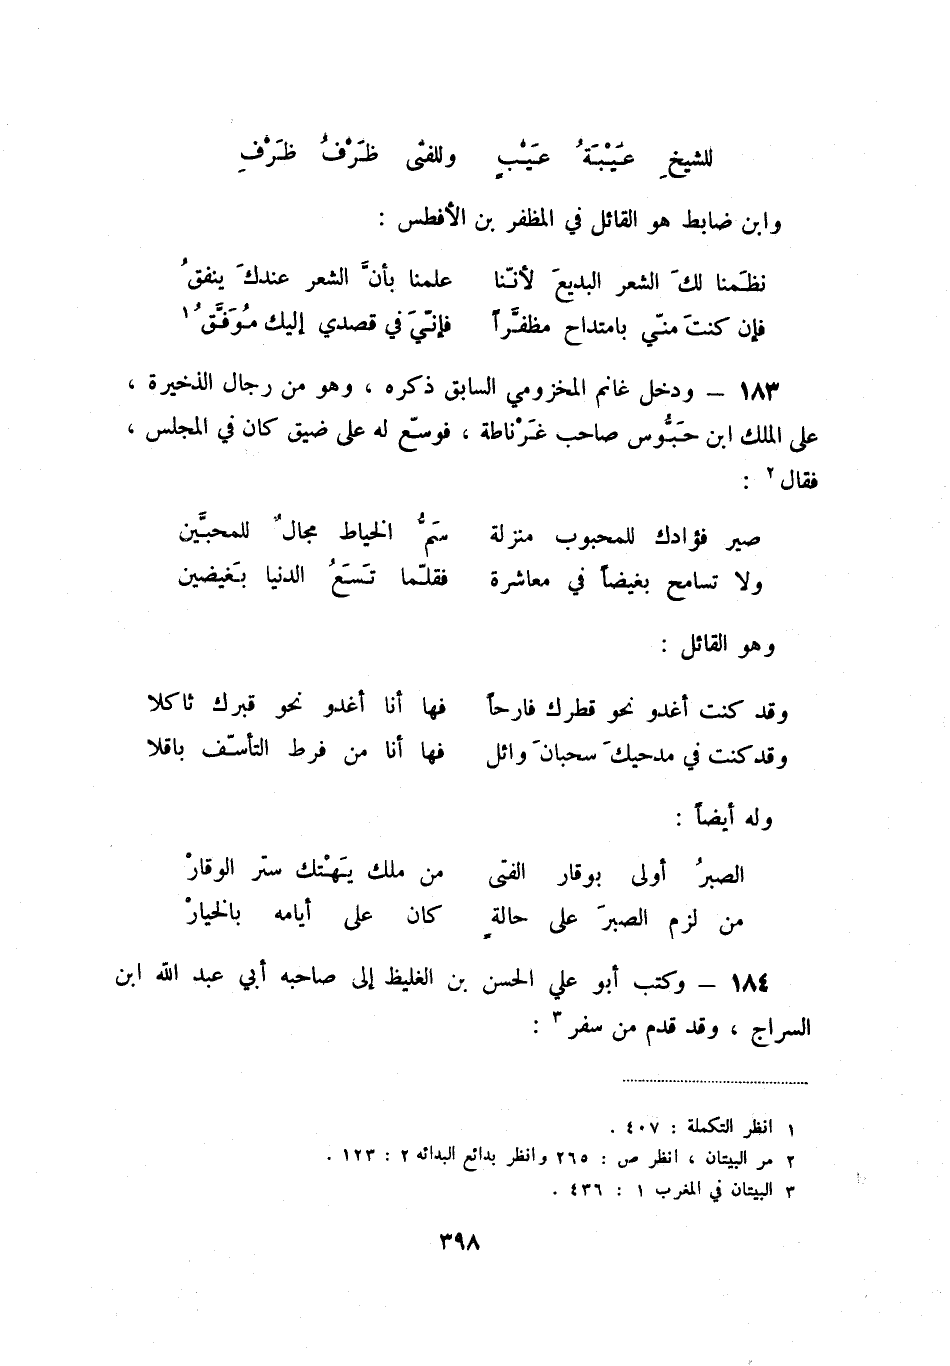 للشيخِ عَيْبَةُ عَيْبٍ وللفتى ظَرْفُ ظَرْفِ
وابن ضابط هو القائل في المظفر بن الأفطس :
نظَمنا لكَ الشعر البديعَ لأنّنا علمنا بأنَّ الشعر عندكَ ينفقُ
فإن كنتَ منّي بامتداح مظفَّراً فإنّيَ في قصدي إليك مُوَفَّقُ ١
١٨٣ – ودخل غانم المخزومي السابق ذكره ، وهو من رجال الذخيرة ،
على الملك ابن حَبُّوس صاحب غَرْناطة ، فوسّع له على ضيق كان في المجلس ،
فقال ٢ :
صير فؤادك للمحبوب منزلة سَمُّ الخياط مجالٌ للمحبَّين
ولا تسامح بغيضاً في معاشرة فقلّما تَسَعُ الدنيا بَغيضين
وهو القائل :
وقد كنت أغدو نحو قطرك فارحاً فها أنا أغدو نحو قبرك ثاكلا
وقد كنت في مدحيكَ سحبانَ وائل فها أنا من فرط التأسّف باقلا
وله أيضاً :
الصبرُ أولى بوقار الفتى من ملك يَهْتك ستر الوقارْ
من لزم الصبرَ على حالةٍ كان على أيامه بالخيارْ
١٨٤ – وكتب أبو علي الحسن بن الغليظ إلى صاحبه أبي عبد الله ابن
السراج ، وقد قدم من سفر ٣ :
١ انظر التكملة : ٤٠٧ .
٢ مر البيتان ، انظر ص : ٢٦٥ وانظر بدائع البدائه ٢ : ١٢٣ .
٣ البيتان في المغرب ١ : ٤٣٦ .
٣٩٨